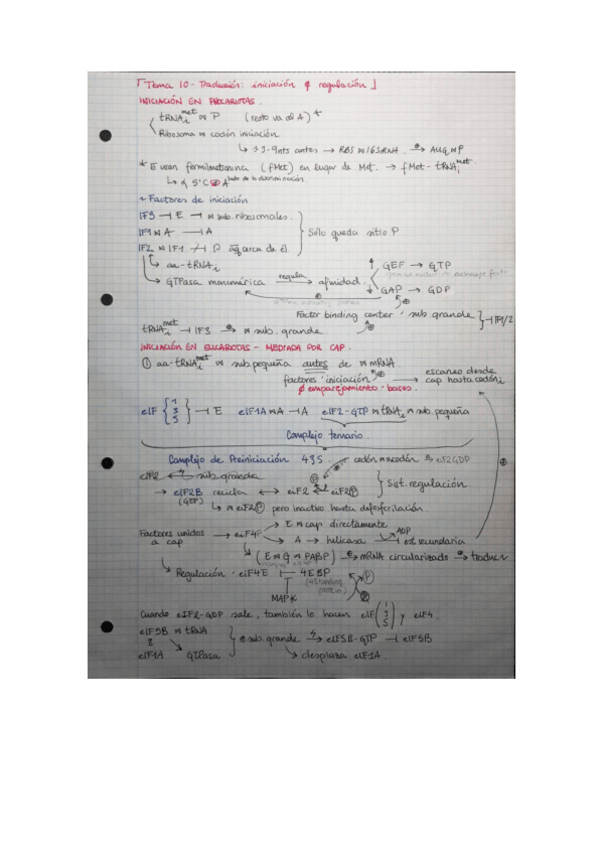 「Tema 10 - Traducción: iniciación y regulación」
INICIACIÓN EN PROCARIOTAS.
tRNAi^met ∞ P (resto va al A) *
Ribosoma ∞ codón iniciación
↳ 3-9nts antes → RBS ∞ 16SrRNA → AUG ∞ P
* E usan formilmetionina (fMet) en lugar de Met. → fMet - tRNAi^met
↳ 5'C A
~ Factores de iniciación
IF3 ⊣ E ⊣ ∞ sub. ribosomales.
IF1 ∞ A ⊣ A
IF2 ∞ IF1 P cerca de él.
Sólo queda sitio P
↳ aa-tRNAi
→ GTPasa monomérica regula → afinidad
↑ GEF → GTP
↓ GAP → GDP
Factor binding center · sub grande ⊣ IF1/2
tRNAi^met ⊣ IF3 ⊕→ ∞ sub. grande.
INICIACIÓN EN EUCARIOTAS - MEDIADA POR CAP.
① aa-tRNAi^met ∞ sub pequeña antes de ∞ mRNA.
factores iniciación → escaneo desde cap hasta codón i
∅ emparejamiento - bases.
eIF {1 3 5} ⊣ E eIF1A ∞ A ⊣ A eIF2-GTP ∞ tRNAi ∞ sub. pequeña
Complejo ternario.
Complejo de Preiniciación 43S. codón ∞ anticodón eIF2GDP
eIF2 sub. grande
→ eIF2B recicla ↔ eIF2 eIF2Ⓟ
(GEF)
Sist. regulación
↳ ∞ eIF2Ⓟ pero inactivo hasta defosforilación
Factores unidos a cap → eIF4F
E ∞ cap directamente
A → helicasa ⊣ est secundaria
ADP
(E ∞ G ∞ PABP) ⊕→ mRNA circularizado ⊕→ traducir
→ Regulación · eIF4E ⊢ 4EBP
(4E binding protein)
MAPK
Cuando eIF2-GDP sale, también lo hacen eIF (1 3 5) y eIF4.
eIF5B ∞ tRNA
eIF1A GTPasa
⊕ sub. grande → eIF5B-GTP ⊣ eIF5B
↳ desplaza eIF1A.